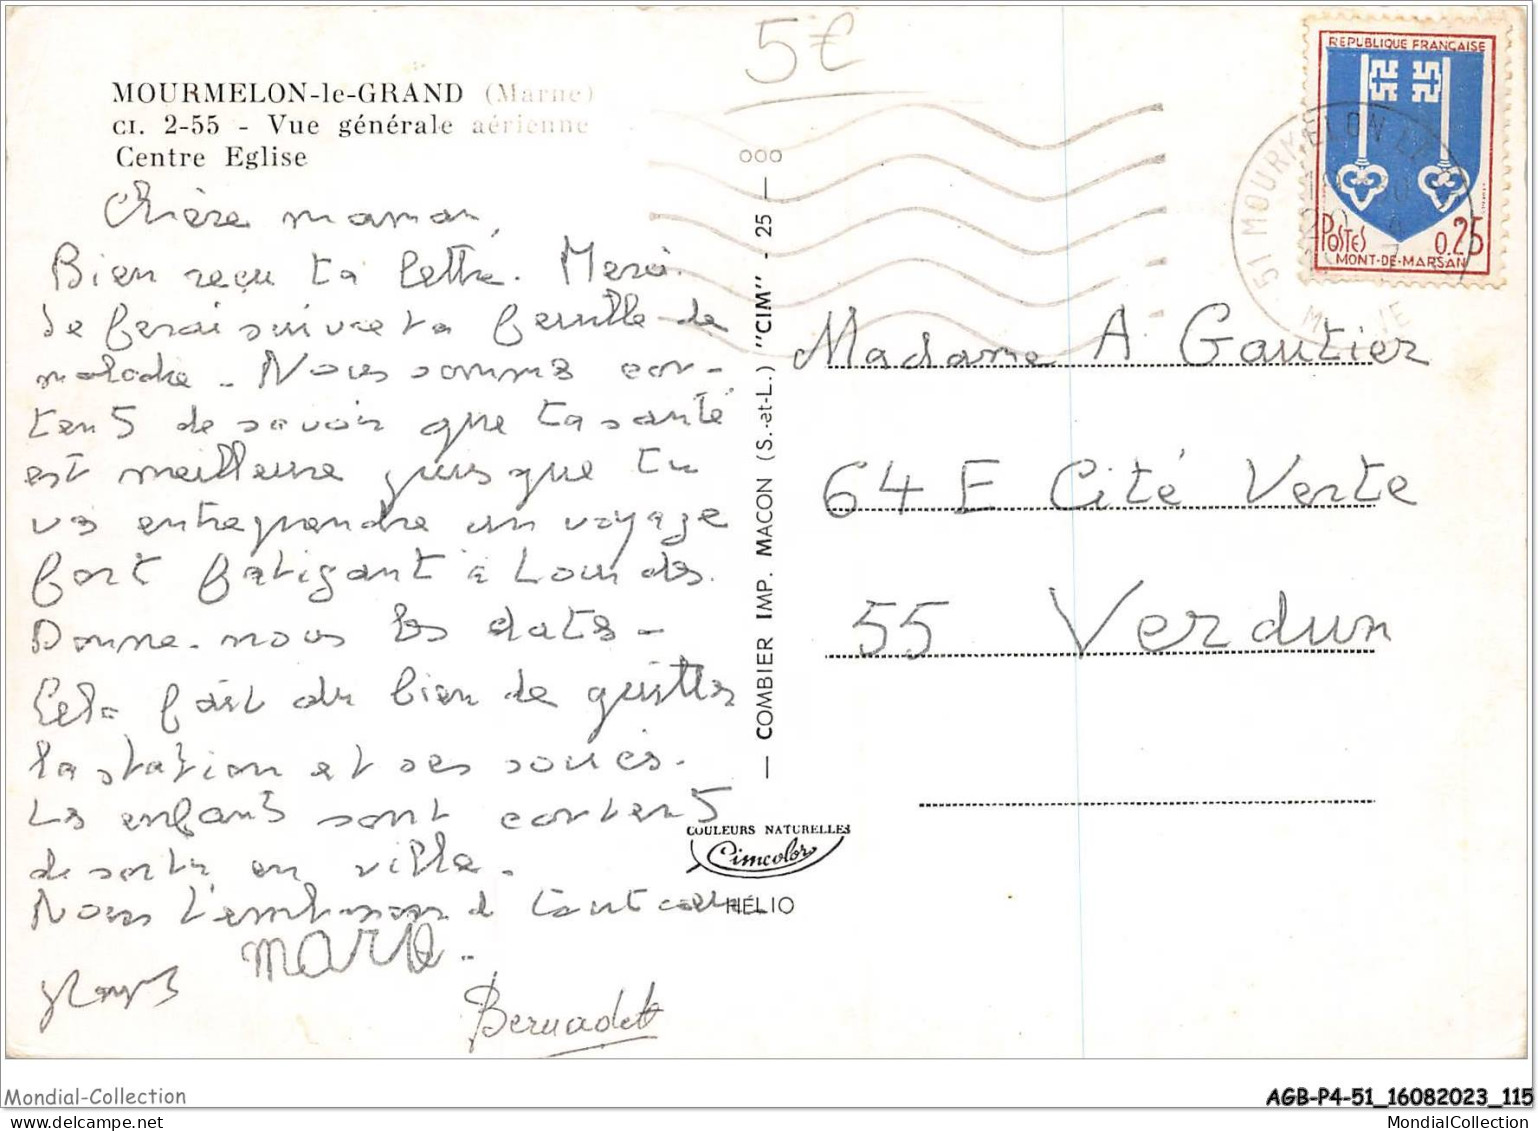 5€
MOURMELON-le-GRAND (Marne)
CI. 2-55 - Vue générale aérienne
Centre Eglise
Chère maman,
Bien reçu ta lettre. Merci.
Je ferai suivre ta feuille de
maladie. Nous sommes con-
tents de savoir que ta santé
est meilleure puisque tu
vas entreprendre un voyage
fort fatigant à Lourdes.
Donne-nous les dates-
Cela fait du bien de quitter
la station et ses soucis.
Les enfants sont contents
de sortir en ville.
Nous t'embrassons tout
Bernadett
COMBIER IMP. MACON (S.-et-L.) "CIM" - 25 -
OOO
COULEURS NATURELLES
Cimcolor
HÉLIO
REPUBLIQUE FRANÇAISE
POSTES 0.25
MONT-DE-MARSAN
51 MOURMELON LE
Madame A Gautier
64 E Cité Verte
55 Verdun
Mondial-Collection
AGB-P4-51_16082023_115
MondialCollection